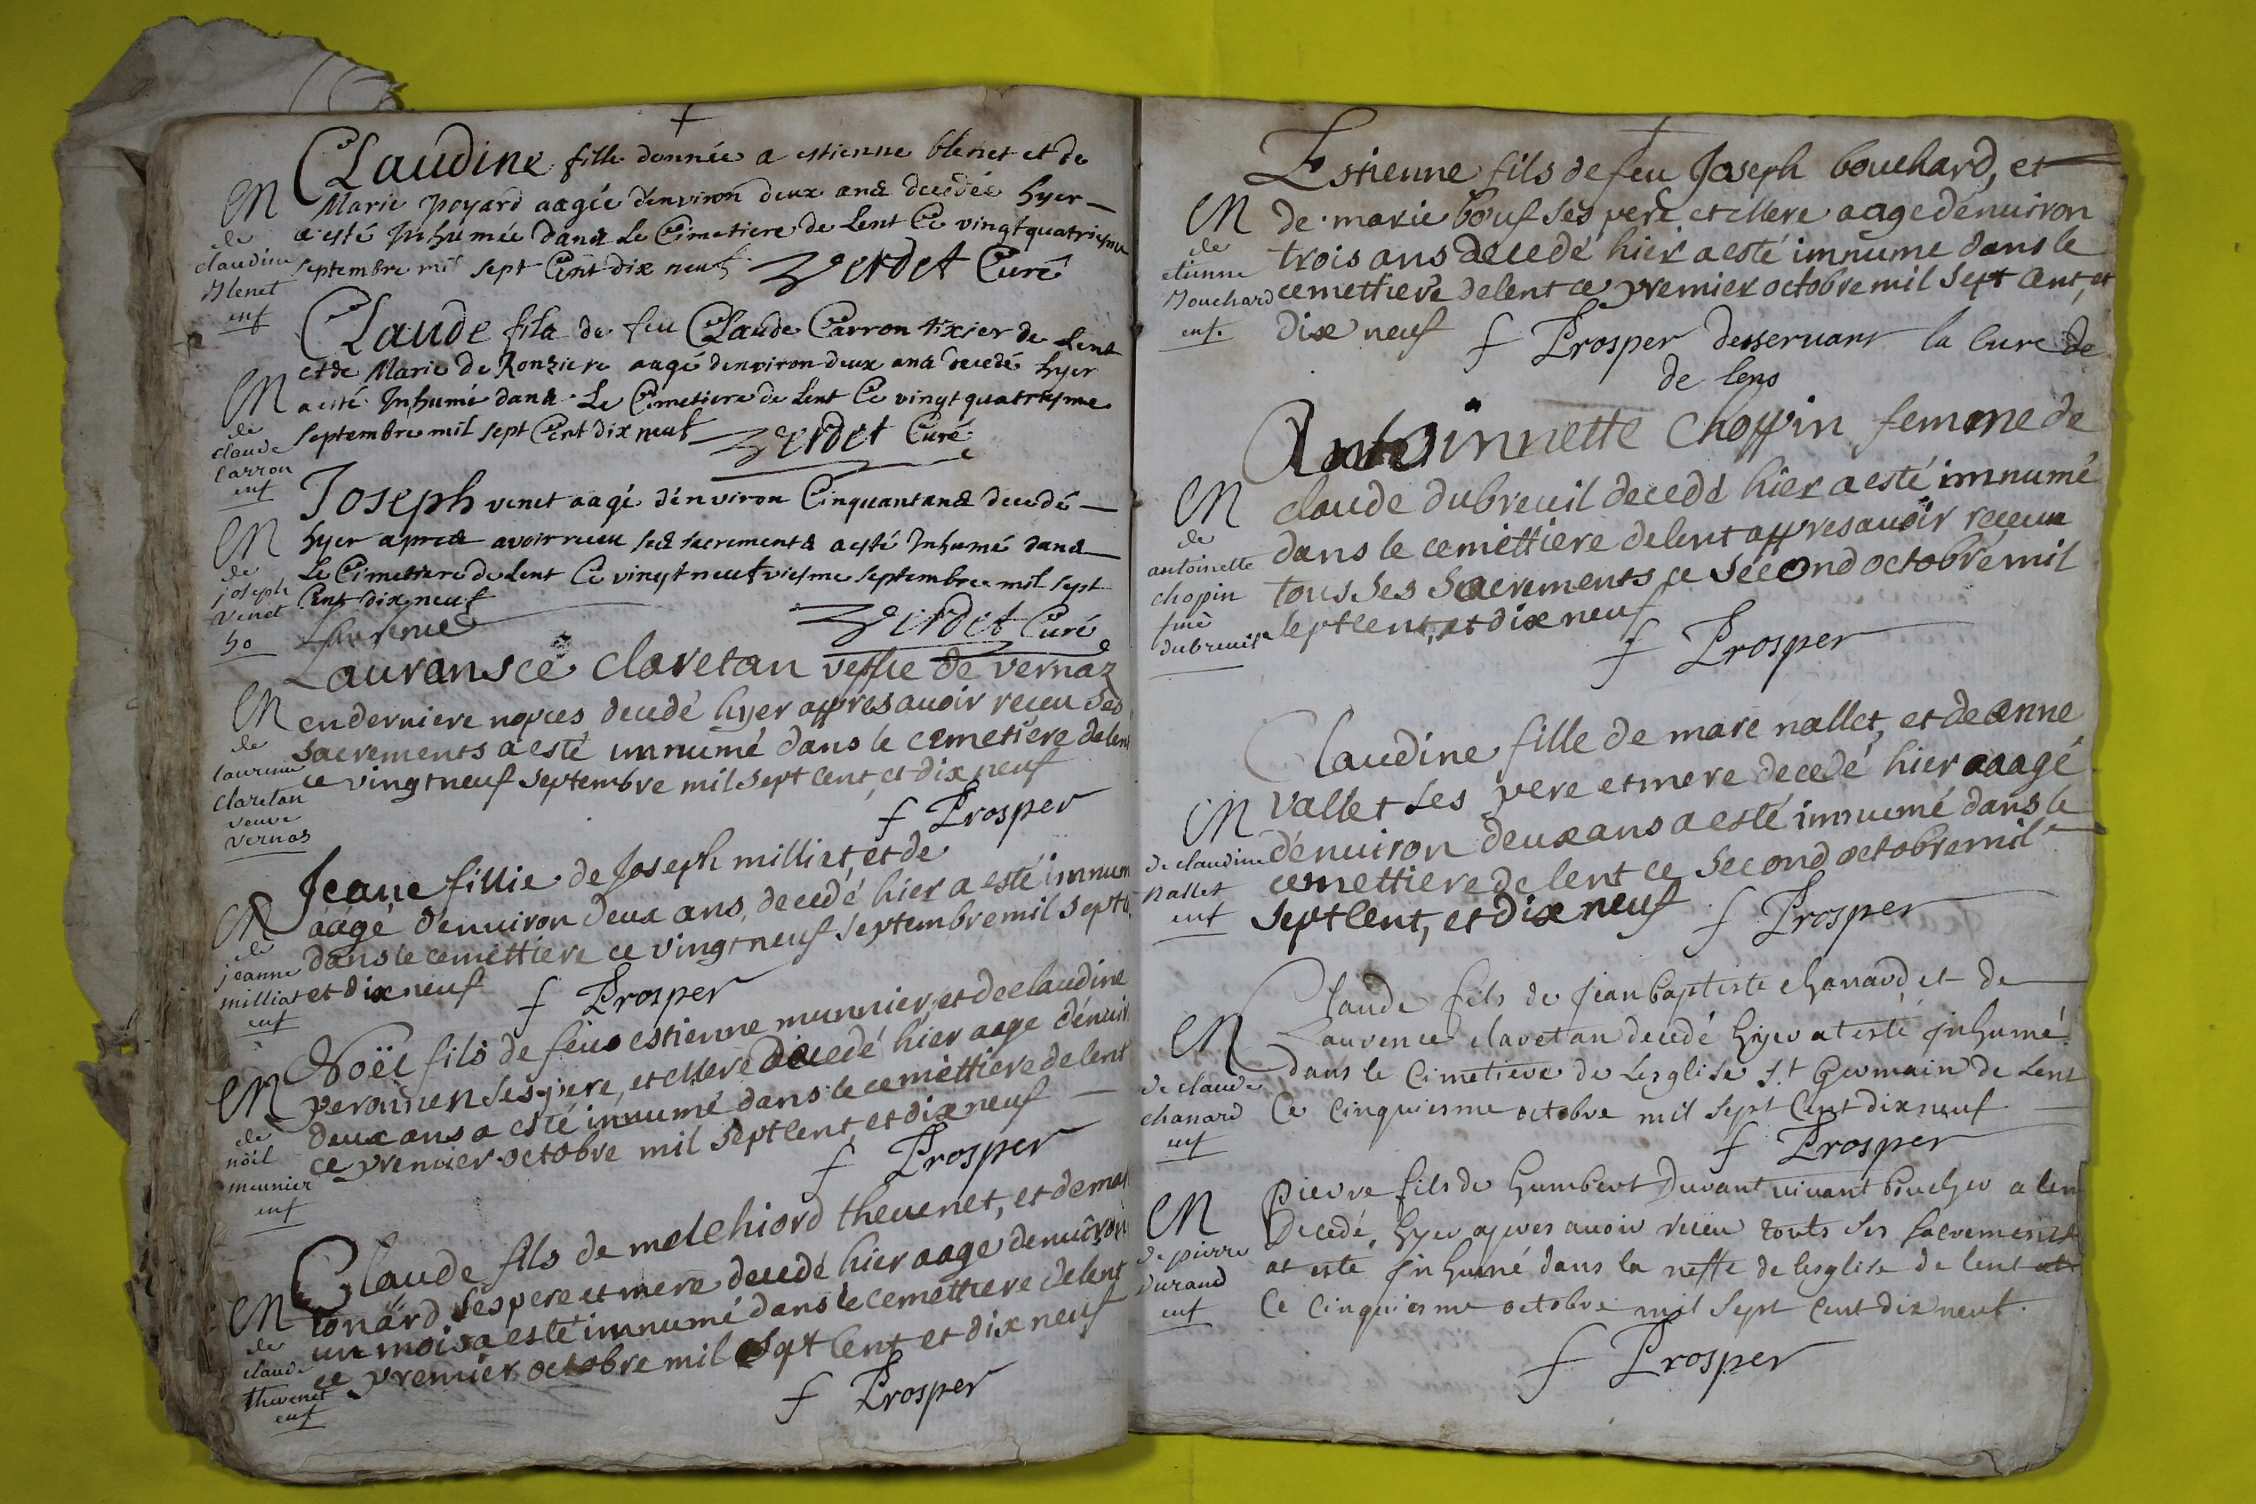 Claudine fille donnée a estienne blenet et de
Marie poyard aagée d'environ deux ans decedée hyer
a esté Inhumée dans Le Cimetiere de Lent Ce vingtquatriesme
septembre mil sept Cent dix neuf Verdet Curé
M
de
claudine
blenet
enf
Claude fils de feu Claude Carron tixier de Lent
et de Marie de Ronziere aagé d'environ deux ans decedé hyer
a esté Inhumé dans Le Cimetiere de Lent Ce vingtquatriesme
septembre mil sept Cent dix neuf Verdet Curé
M
de
claude
carron
enf
Joseph venet aagé d'environ Cinquant ans decedé
hyer apres avoir receu ses sacrements a esté Inhumé dans
Le Cimetiere de Lent Ce vingt neufviesme septembre mil sept
Cent dix neuf
Verdet Curé
M
de
joseph
venet
ho
Laurence
Lauransce claretan vefue de vernaz
en derniere nopces decedé hyer appres auoir receu ses
sacrements a esté innumé dans le cemetiere de lent
ce vingt neuf septembre mil sept cent, et dix neuf
f Prosper
M
de
laurence
claretan
veuve
vernas
Jeane fillie de Joseph milliat, et de
aagé d'enuiron deux ans, decedé hier a esté innum
dans le cemettiere ce vingt neuf septembre mil sept c
et dix neuf f Prosper
M
de
jeanne
milliat
enf
Noël fils de feu estienne munnier, et de claudine
peronnen ses pere, et mere decedé hier aage d'enuir
deux ans a esté innumé dans le cemettiere de lent
ce premier octobre mil sept cent, et dix neuf
f Prosper
M
de
nöel
meunier
enf
Claude fils de melchiord theuenet, et de mar
ionard ses pere et mere decedé hier aage denuiron
un mois a esté innumé dans le cemettiere de lent
ce premier octobre mil sept cent et dix neuf
f Prosper
M
de
claude
thevenet
enf
Estienne fils de feu Joseph bouchard, et
de marie bouf ses pere et mere aage d'enuiron
trois ans decedé hier a esté innume dans le
cemettiere de lent ce premier octobre mil sept cent, et
dix neuf f Prosper desservant la Cure de
de lens
M
de
etienne
bouchard
enf.
Antoinnette Choppin femme de
claude dubreuil decedé hier a esté innumé
dans le cemettiere de lent appres auoir receu
tous ses sacrements ce second octobre mil
sept cent, et dix neuf
f Prosper
M
de
antoinette
chopin
fme
dubreuil
Claudine fille de marc nallet, et de anne
vallet ses pere et mere decedé hier aagé
d'enuiron deux ans a esté innumé dans le
cemettiere de lent ce second octobre mil
sept cent, et dix neuf f Prosper
M
de claudine
nallet
enf
Claude fils de Jean baptiste chanard et de
Laurence claretan decedé hyer at esté inhumé
dans le Cimetiere de Lesglise s.t Germain de Lent
Ce cinquiesme octobre mil sept Cent dix neuf
f Prosper
M
de claude
chanard
enf
Pierre fils de humbert Durant vivant boucher a len
Decedé, hyer apres auoir receu touts ses sacrements
at esté inhumé dans la neffe de lesglise de lent
Ce cinquiesme octobre mil sept cent dix neuf.
f Prosper
M
de pierre
durand
enf